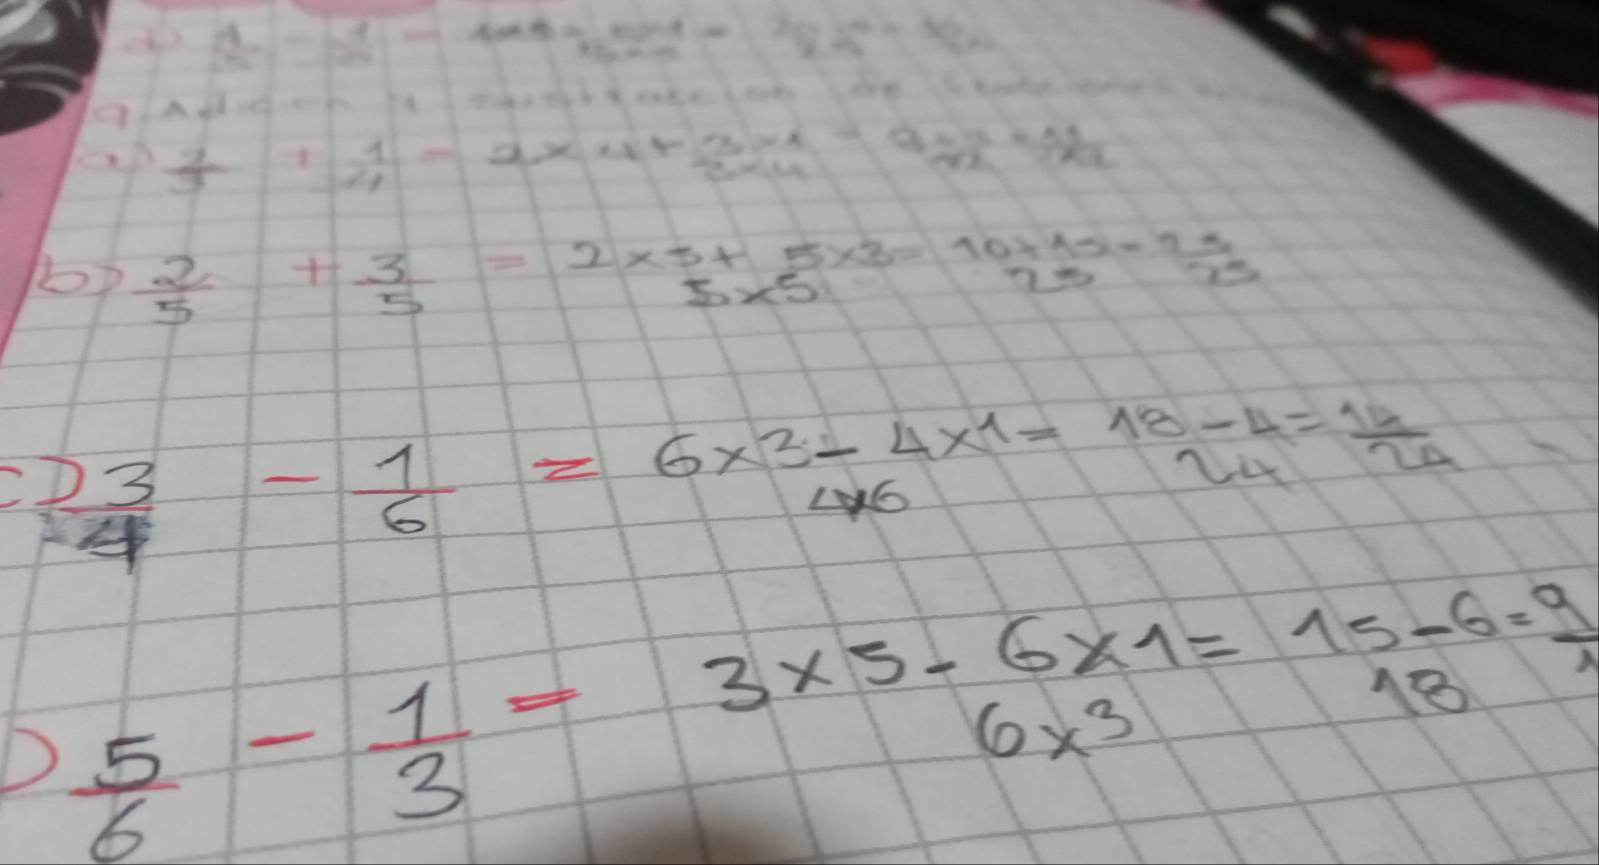 9. Adición y sustracción de
a) 2/3 + 1/4 = 2x4+3x1/3x4 = 8+3/12 = 11/12
b) 2/5 + 3/5 = 2x5+ 5x3/5x5 = 10+15/25 = 25/25
c) 3/4 - 1/6 = 6x3-4x1/4x6 = 18-4/24 = 14/24
) 5/6 - 1/3 = 3x5-6x1/6x3 = 15-6/18 = 9/1